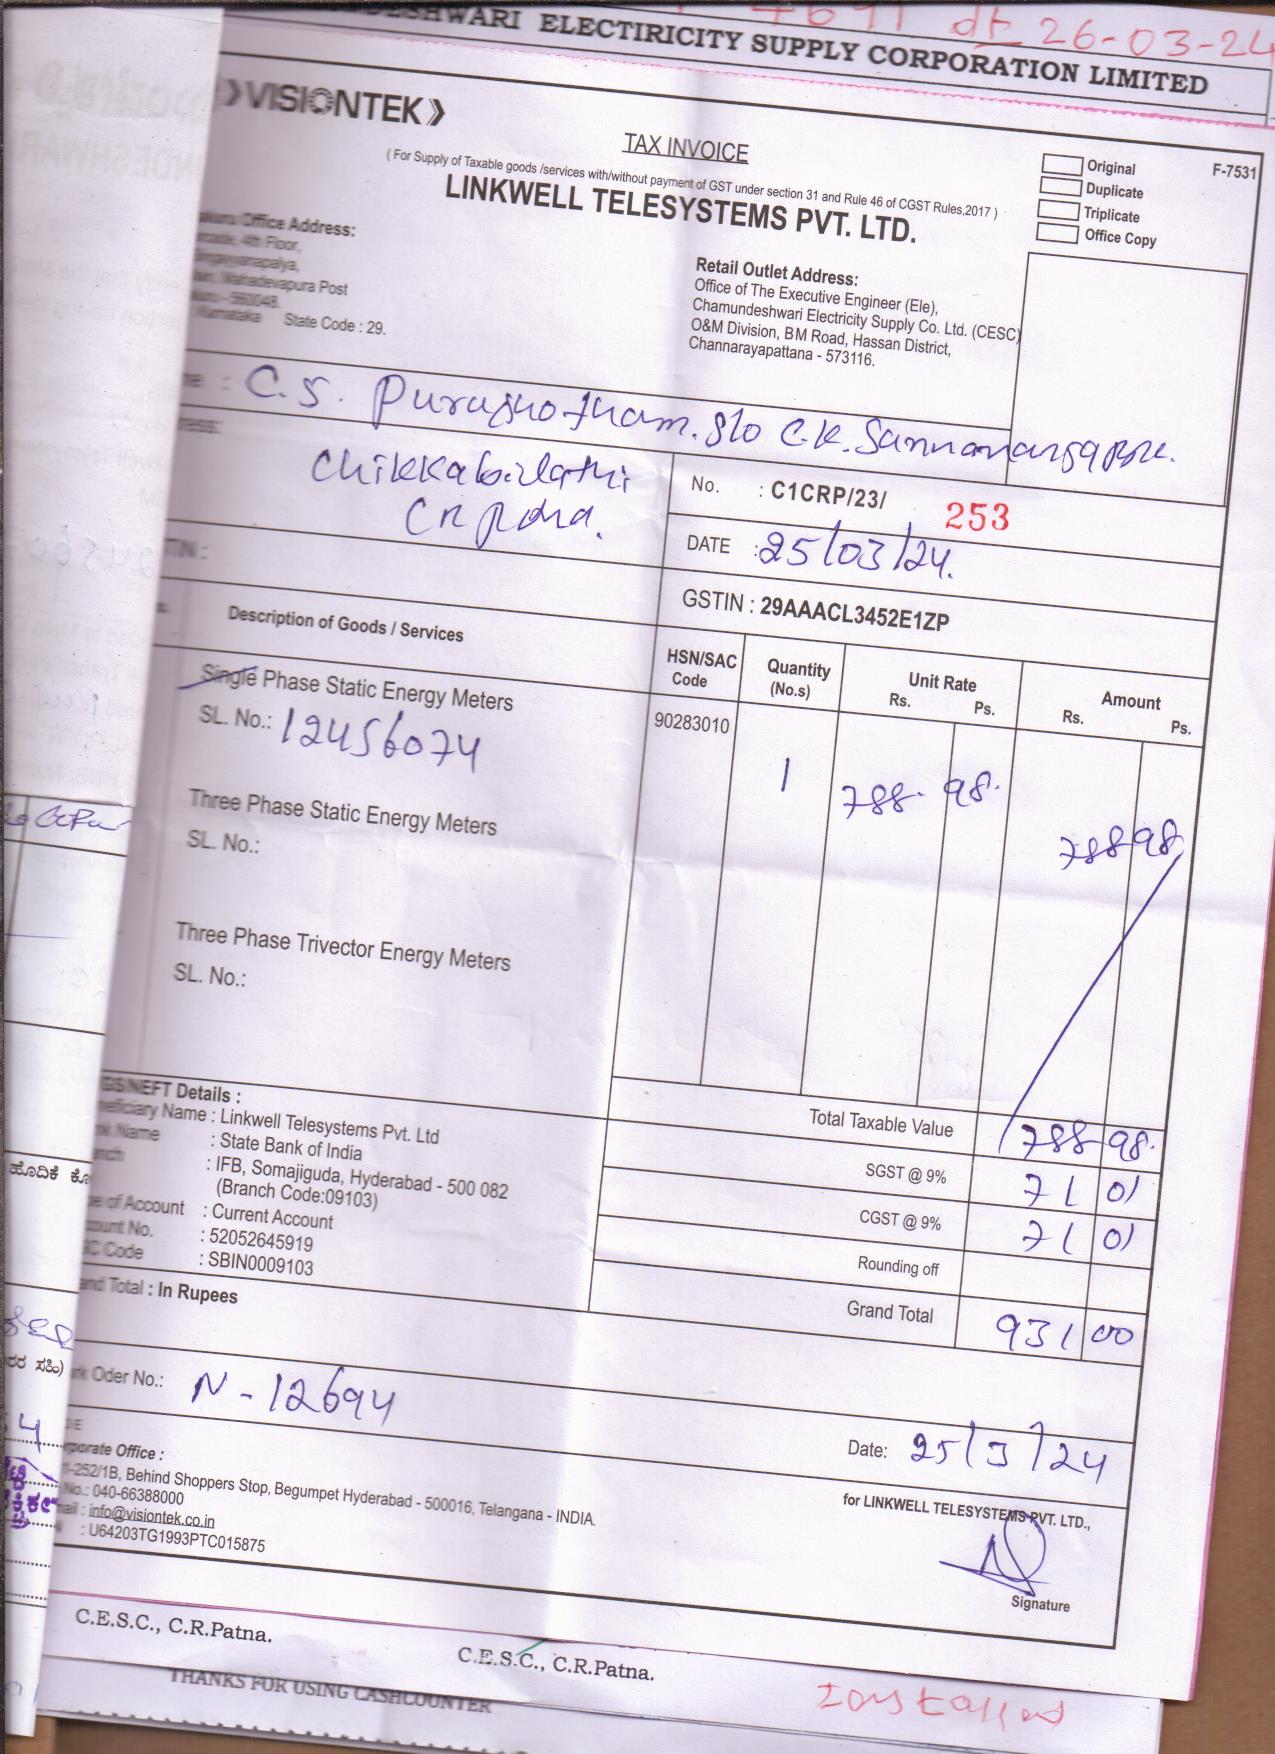 4691 dt 26-03-24
DESHWARI ELECTIRICITY SUPPLY CORPORATION LIMITED
VISIONTEK
TAX INVOICE
( For Supply of Taxable goods /services with/without payment of GST under section 31 and Rule 46 of CGST Rules,2017 )
LINKWELL TELESYSTEMS PVT. LTD.
Original
Duplicate
Triplicate
Office Copy
F-7531
Office Address:
4th Floor,
Mahadevapura Post
- 560048.
Karnataka State Code : 29.
Retail Outlet Address:
Office of The Executive Engineer (Ele),
Chamundeshwari Electricity Supply Co. Ltd. (CESC)
O&M Division, BM Road, Hassan District,
Channarayapattana - 573116.
: C.S. Purushotham. S/o C.K.
No. : C1CRP/23/ 253
DATE : 25/03/24.
GSTIN : 29AAACL3452E1ZP
Description of Goods / Services
HSN/SAC Code
Quantity (No.s)
Unit Rate
Rs. Ps.
Amount
Rs. Ps.
Single Phase Static Energy Meters
SL. No.: 12456074
90283010 1 788. 98. 788 98
Three Phase Static Energy Meters
SL. No.:
Three Phase Trivector Energy Meters
SL. No.:
Total Taxable Value 788 98.
SGST @ 9% 71 01
CGST @ 9% 71 01
Rounding off
Grand Total 931 00
GS/NEFT Details :
neficiary Name : Linkwell Telesystems Pvt. Ltd
nk Name : State Bank of India
nch : IFB, Somajiguda, Hyderabad - 500 082
(Branch Code:09103)
pe of Account : Current Account
count No. : 52052645919
SC Code : SBIN0009103
and Total : In Rupees
rk Oder No.: N-12694
Date: 25/3/24
rporate Office :
1-252/1B, Behind Shoppers Stop, Begumpet Hyderabad - 500016, Telangana - INDIA.
No.: 040-66388000
mail : info@visiontek.co.in
: U64203TG1993PTC015875
for LINKWELL TELESYSTEMS PVT. LTD.,
Signature
C.E.S.C., C.R.Patna.
C.E.S.C., C.R.Patna.
THANKS FOR USING CASHCOUNTER